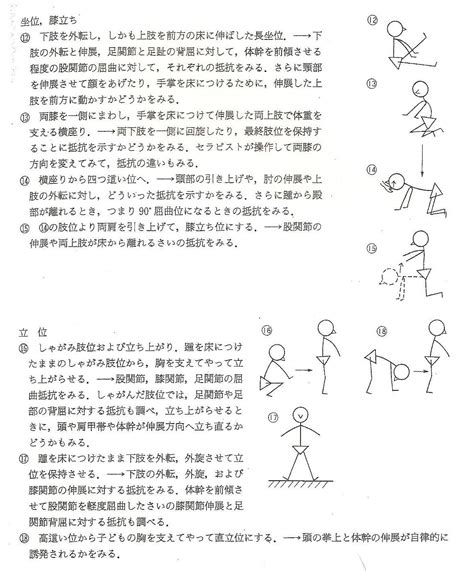 坐位，膝立ち
⑫ 下肢を外転し，しかも上肢を前方の床に伸ばした長坐位．─→下
肢の外転と伸展，足関節と足趾の背屈に対して，体幹を前傾させる
程度の股関節の屈曲に対して，それぞれの抵抗をみる．さらに頸部
を伸展させて顔をあげたり，手掌を床につけるために，伸展した上
肢を前方に動かすかどうかをみる．
⑬ 両膝を一側にまわし，手掌を床につけて伸展した両上肢で体重を
支える横座り．─→両下肢を一側に回旋したり，最終肢位を保持す
ることに抵抗を示すかどうかをみる．セラピストが操作して両膝の
方向を変えてみて，抵抗の違いもみる．
⑭ 横座りから四つ這い位へ．─→頭部の引き上げや，肘の伸展や上
肢の外転に対し，どういった抵抗を示すかをみる．さらに踵から殿
部が離れるとき，つまり 90°屈曲位になるときの抵抗をみる．
⑮ ⑭の肢位より両肩を引き上げて，膝立ち位にする．─→股関節の
伸展や両上肢が床から離れるさいの抵抗をみる．
⑫
⑬
⑭
⑮
立　位
⑯ しゃがみ肢位および立ち上がり．踵を床につけ
たままのしゃがみ肢位から，胸を支えてやって立
ち上がらせる．─→股関節，膝関節，足関節の屈
曲抵抗をみる．しゃがんだ肢位では，足関節や足
部の背屈に対する抵抗も調べ，立ち上がらせると
きに，頭や肩甲帯や体幹が伸展方向へ立ち直るか
どうかもみる．
⑰ 踵を床につけたまま下肢を外転，外旋させて立
位を保持させる．─→下肢の外転，外旋，および
膝関節の伸展に対する抵抗をみる．体幹を前傾さ
せて股関節を軽度屈曲したさいの膝関節伸展と足
関節背屈に対する抵抗も調べる．
⑱ 高這い位から子どもの胸を支えてやって直立位にする．─→頭の挙上と体幹の伸展が自律的に
誘発されるかをみる．
⑯
⑱
⑰